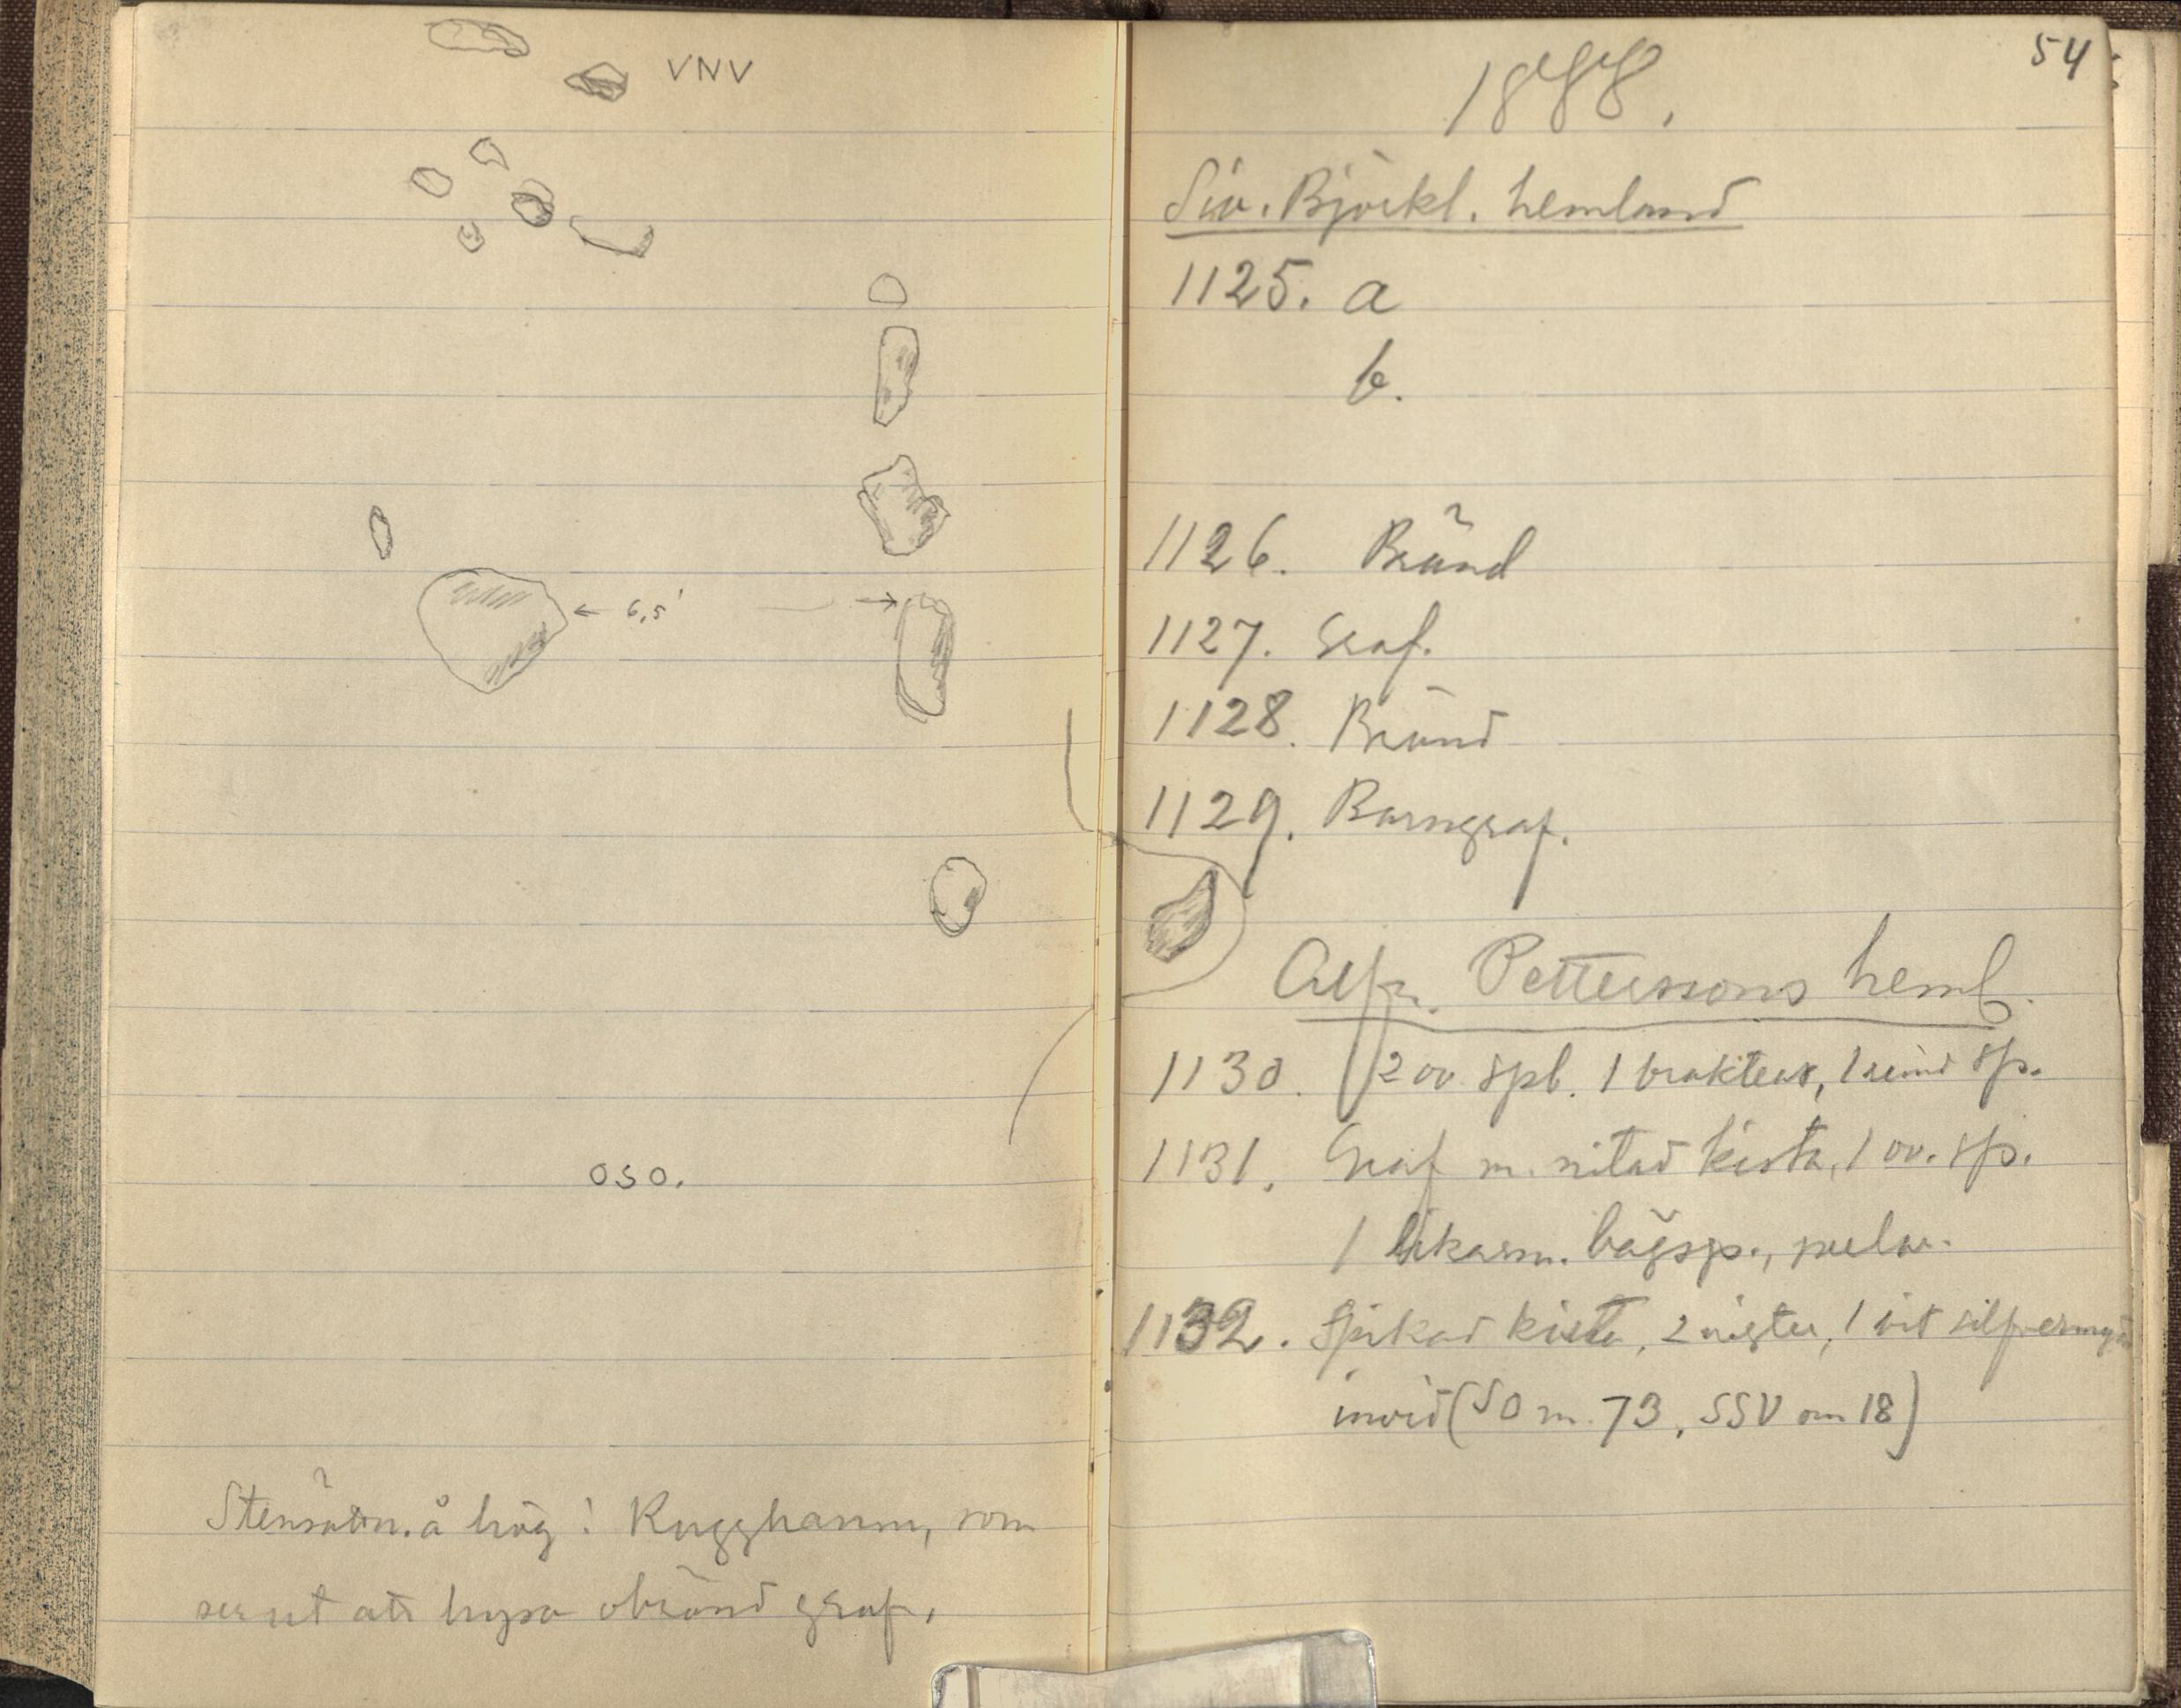 VNV
← 6,5' →
OSO.
Stensättn. å hög i Kugghamn, som
ser ut att hysa obränd graf.
54
1888.
Siv. Björkl. hemland
1125. a
b.
1126. Bränd
1127. Graf.
1128. Bränd
1129. Barngraf.
Alfr. Petterssons heml.
1130. 2 ov. spb. 1 brakteat, 1 rund sp.
1131. Graf m. nitad kista, 1 ov. sp.
1 likarm. bågsp., perlor.
1132. Spikad kista, 2 vigter, 1 bit silfvermynt
invid (SO m. 73, SSV om 18)